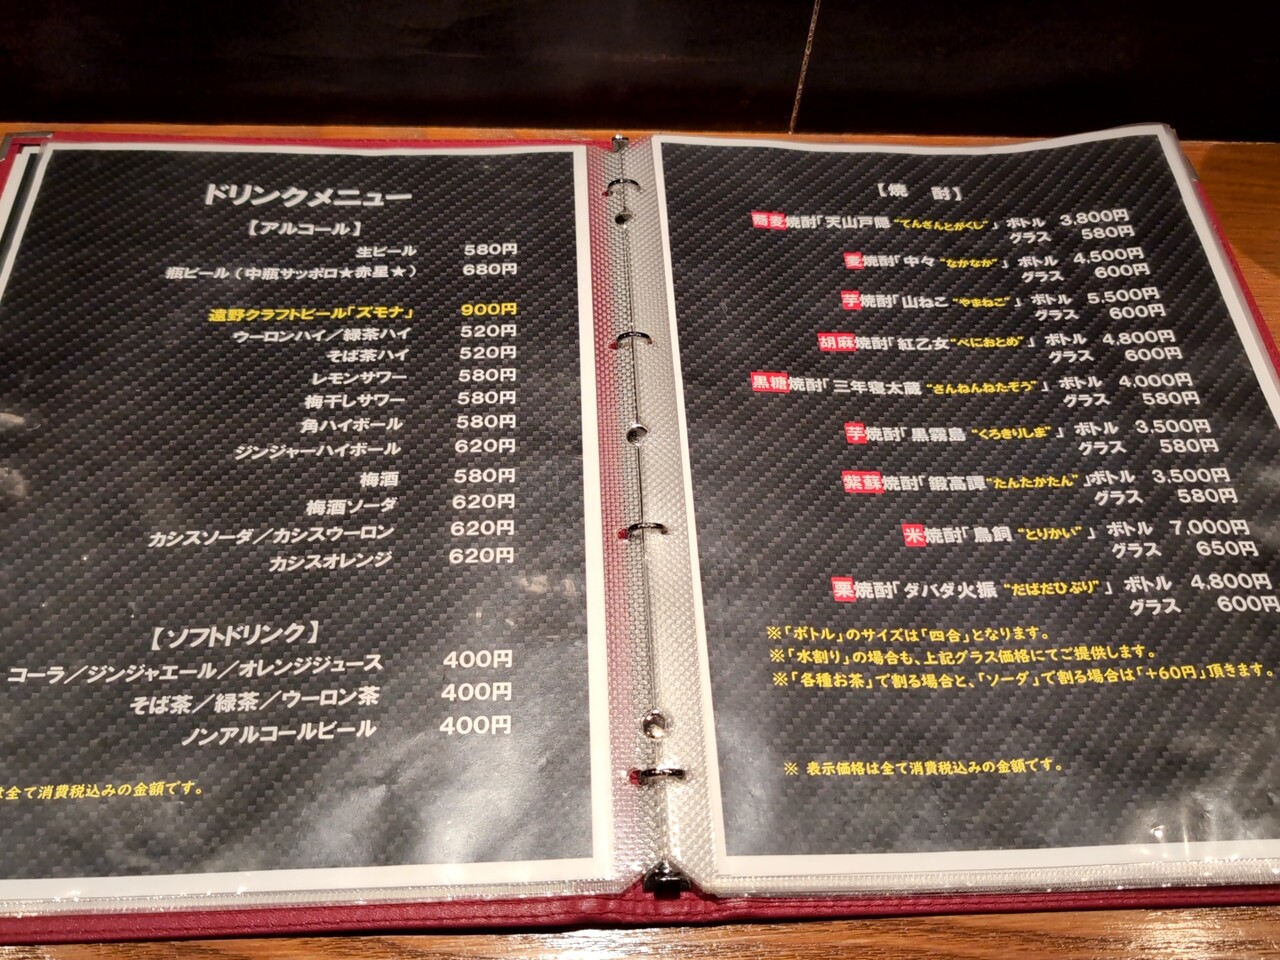 ドリンクメニュー
【アルコール】
生ビール 580円
瓶ビール（中瓶サッポロ★赤星★） 680円
遠野クラフトビール「ズモナ」 900円
ウーロンハイ／緑茶ハイ 520円
そば茶ハイ 520円
レモンサワー 580円
梅干しサワー 580円
角ハイボール 580円
ジンジャーハイボール 620円
梅酒 580円
梅酒ソーダ 620円
カシスソーダ／カシスウーロン 620円
カシスオレンジ 620円
【ソフトドリンク】
コーラ／ジンジャエール／オレンジジュース 400円
そば茶／緑茶／ウーロン茶 400円
ノンアルコールビール 400円
は全て消費税込みの金額です。
【焼 酎】
蕎麦焼酎「天山戸隠“てんざんとがくし”」 ボトル 3,800円
グラス 580円
麦焼酎「中々“なかなか”」 ボトル 4,500円
グラス 600円
芋焼酎「山ねこ“やまねこ”」 ボトル 5,500円
グラス 600円
胡麻焼酎「紅乙女“べにおとめ”」 ボトル 4,800円
グラス 600円
黒糖焼酎「三年寝太蔵“さんねんねたぞう”」 ボトル 4,000円
グラス 580円
芋焼酎「黒霧島“くろきりしま”」 ボトル 3,500円
グラス 580円
紫蘇焼酎「鍛高譚“たんたかたん”」ボトル 3,500円
グラス 580円
米焼酎「鳥飼“とりかい”」 ボトル 7,000円
グラス 650円
栗焼酎「ダバダ火振“だばだひぶり”」 ボトル 4,800円
グラス 600円
※「ボトル」のサイズは「四合」となります。
※「水割り」の場合も、上記グラス価格にてご提供します。
※「各種お茶」で割る場合と、「ソーダ」で割る場合は「+60円」頂きます。
※ 表示価格は全て消費税込みの金額です。